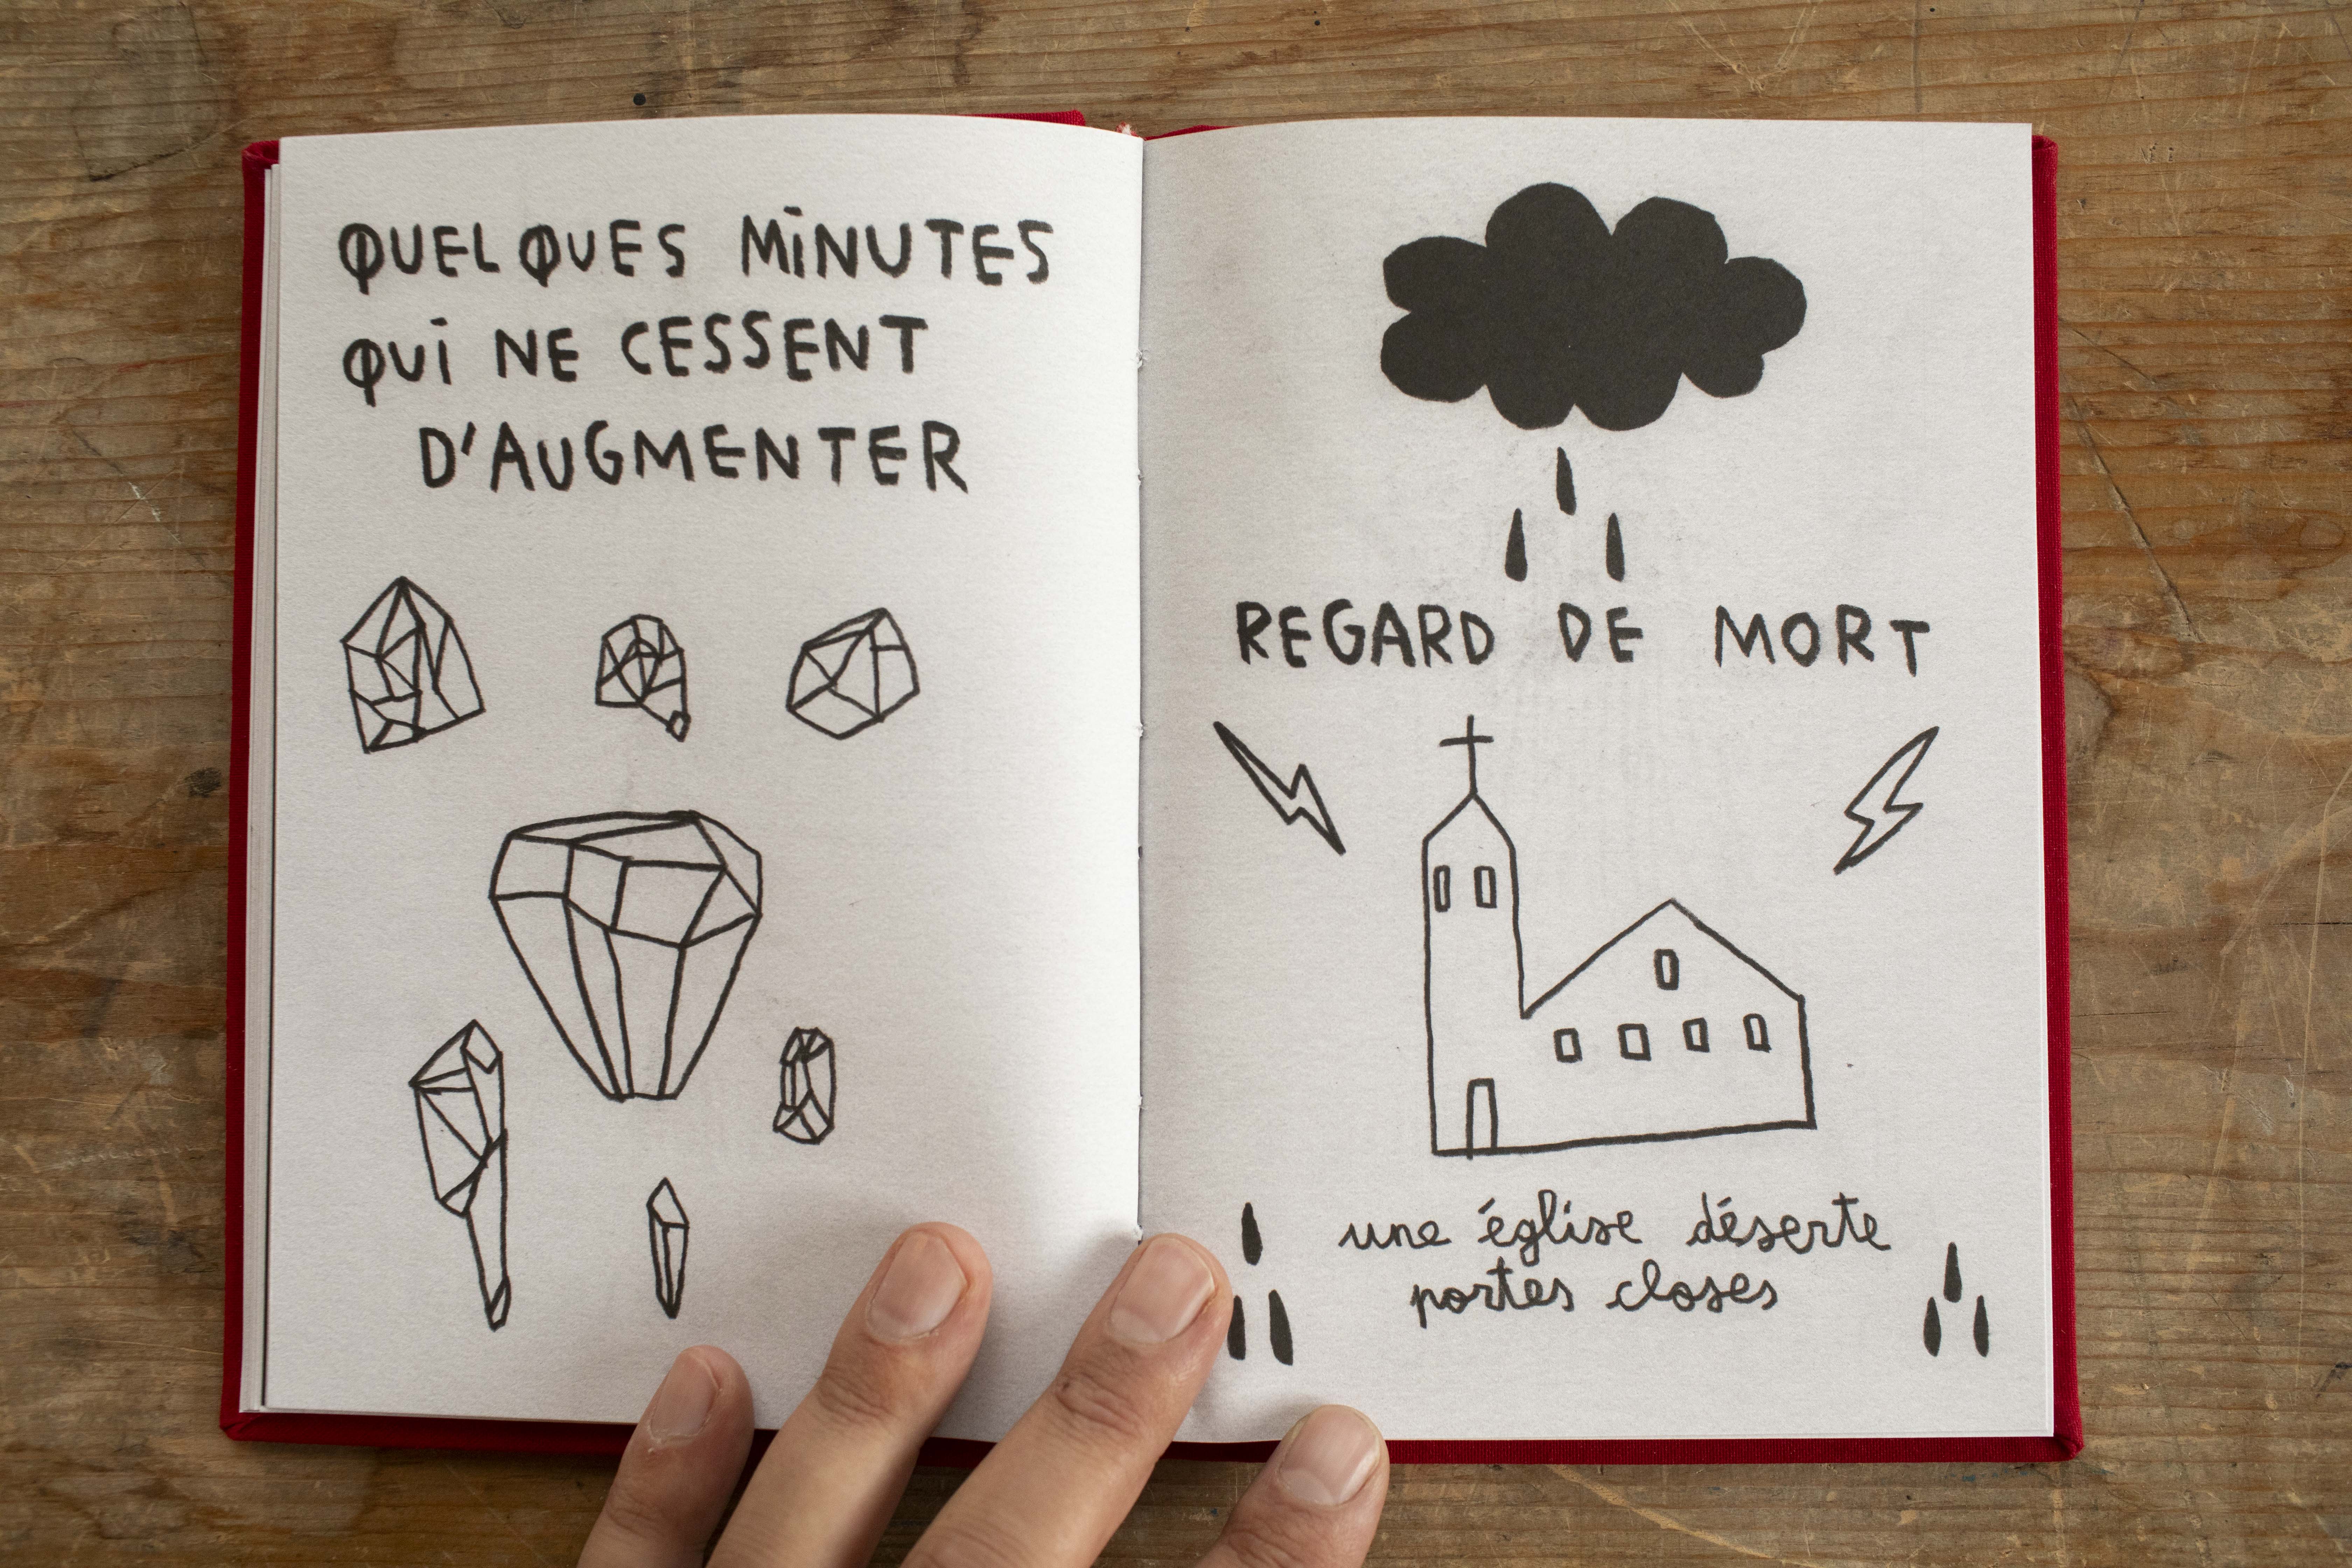 QUELQUES MINUTES
QUI NE CESSENT
D'AUGMENTER
REGARD DE MORT
une église déserte
portes closes